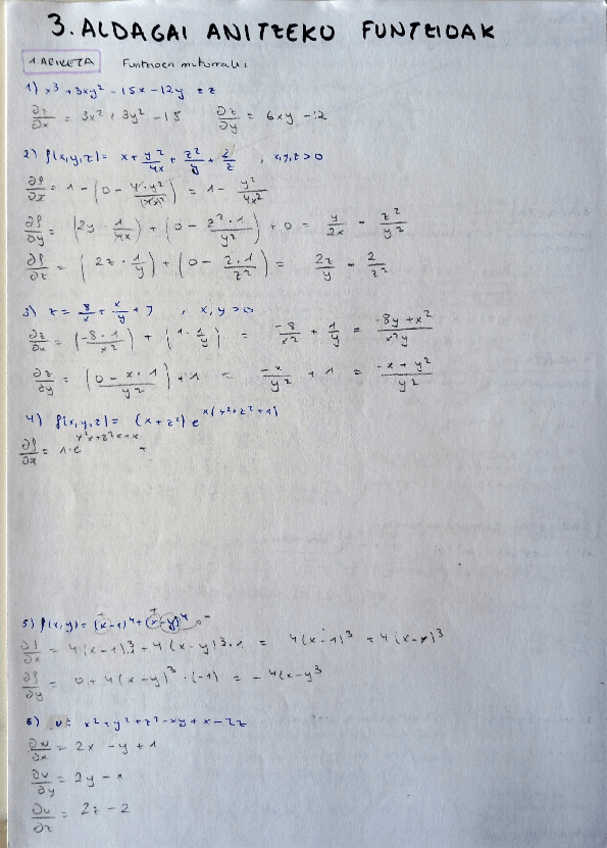 3. ALDAGAI ANITZEKO FUNTZIOAK
1 ARIKETA Funtzioen muturrak:
1) x³ + 3xy² - 15x - 12y = z
∂z/∂x = 3x² + 3y² - 15 ∂z/∂y = 6xy - 12
2) f(x,y,z) = x + y²/4x + z²/y + 2/z , x,y,z > 0
∂f/∂x = 1 - (0 - 4·y²/(4x)²) = 1 - y²/4x²
∂f/∂y = (2y · 1/4x) + (0 - z²·1/y²) + 0 = y/2x - z²/y²
∂f/∂z = (2z · 1/y) + (0 - 2·1/z²) = 2z/y - 2/z²
3) z = 8/x + x/y + y , x, y > 0
∂z/∂x = (-8·1/x²) + (1 · 1/y) = -8/x² + 1/y = -8y + x²/x²y
∂z/∂y = (0 - x·1/y²) + 1 = -x/y² + 1 = -x + y²/y²
4) f(x,y,z) = (x + z²) e^x(y²+z²+1)
∂f/∂x = 1·e^y²x+z²x+x +
5) f(x,y) = (x-1)⁴ + (x-y)⁴
∂f/∂x = 4(x-1)³ + 4(x-y)³·1 = 4(x-1)³ + 4(x-y)³
∂f/∂y = 0 + 4(x-y)³ · (-1) = -4(x-y³
6) u = x² + y² + z² - xy + x - 2z
∂u/∂x = 2x - y + 1
∂u/∂y = 2y - x
∂u/∂z = 2z - 2